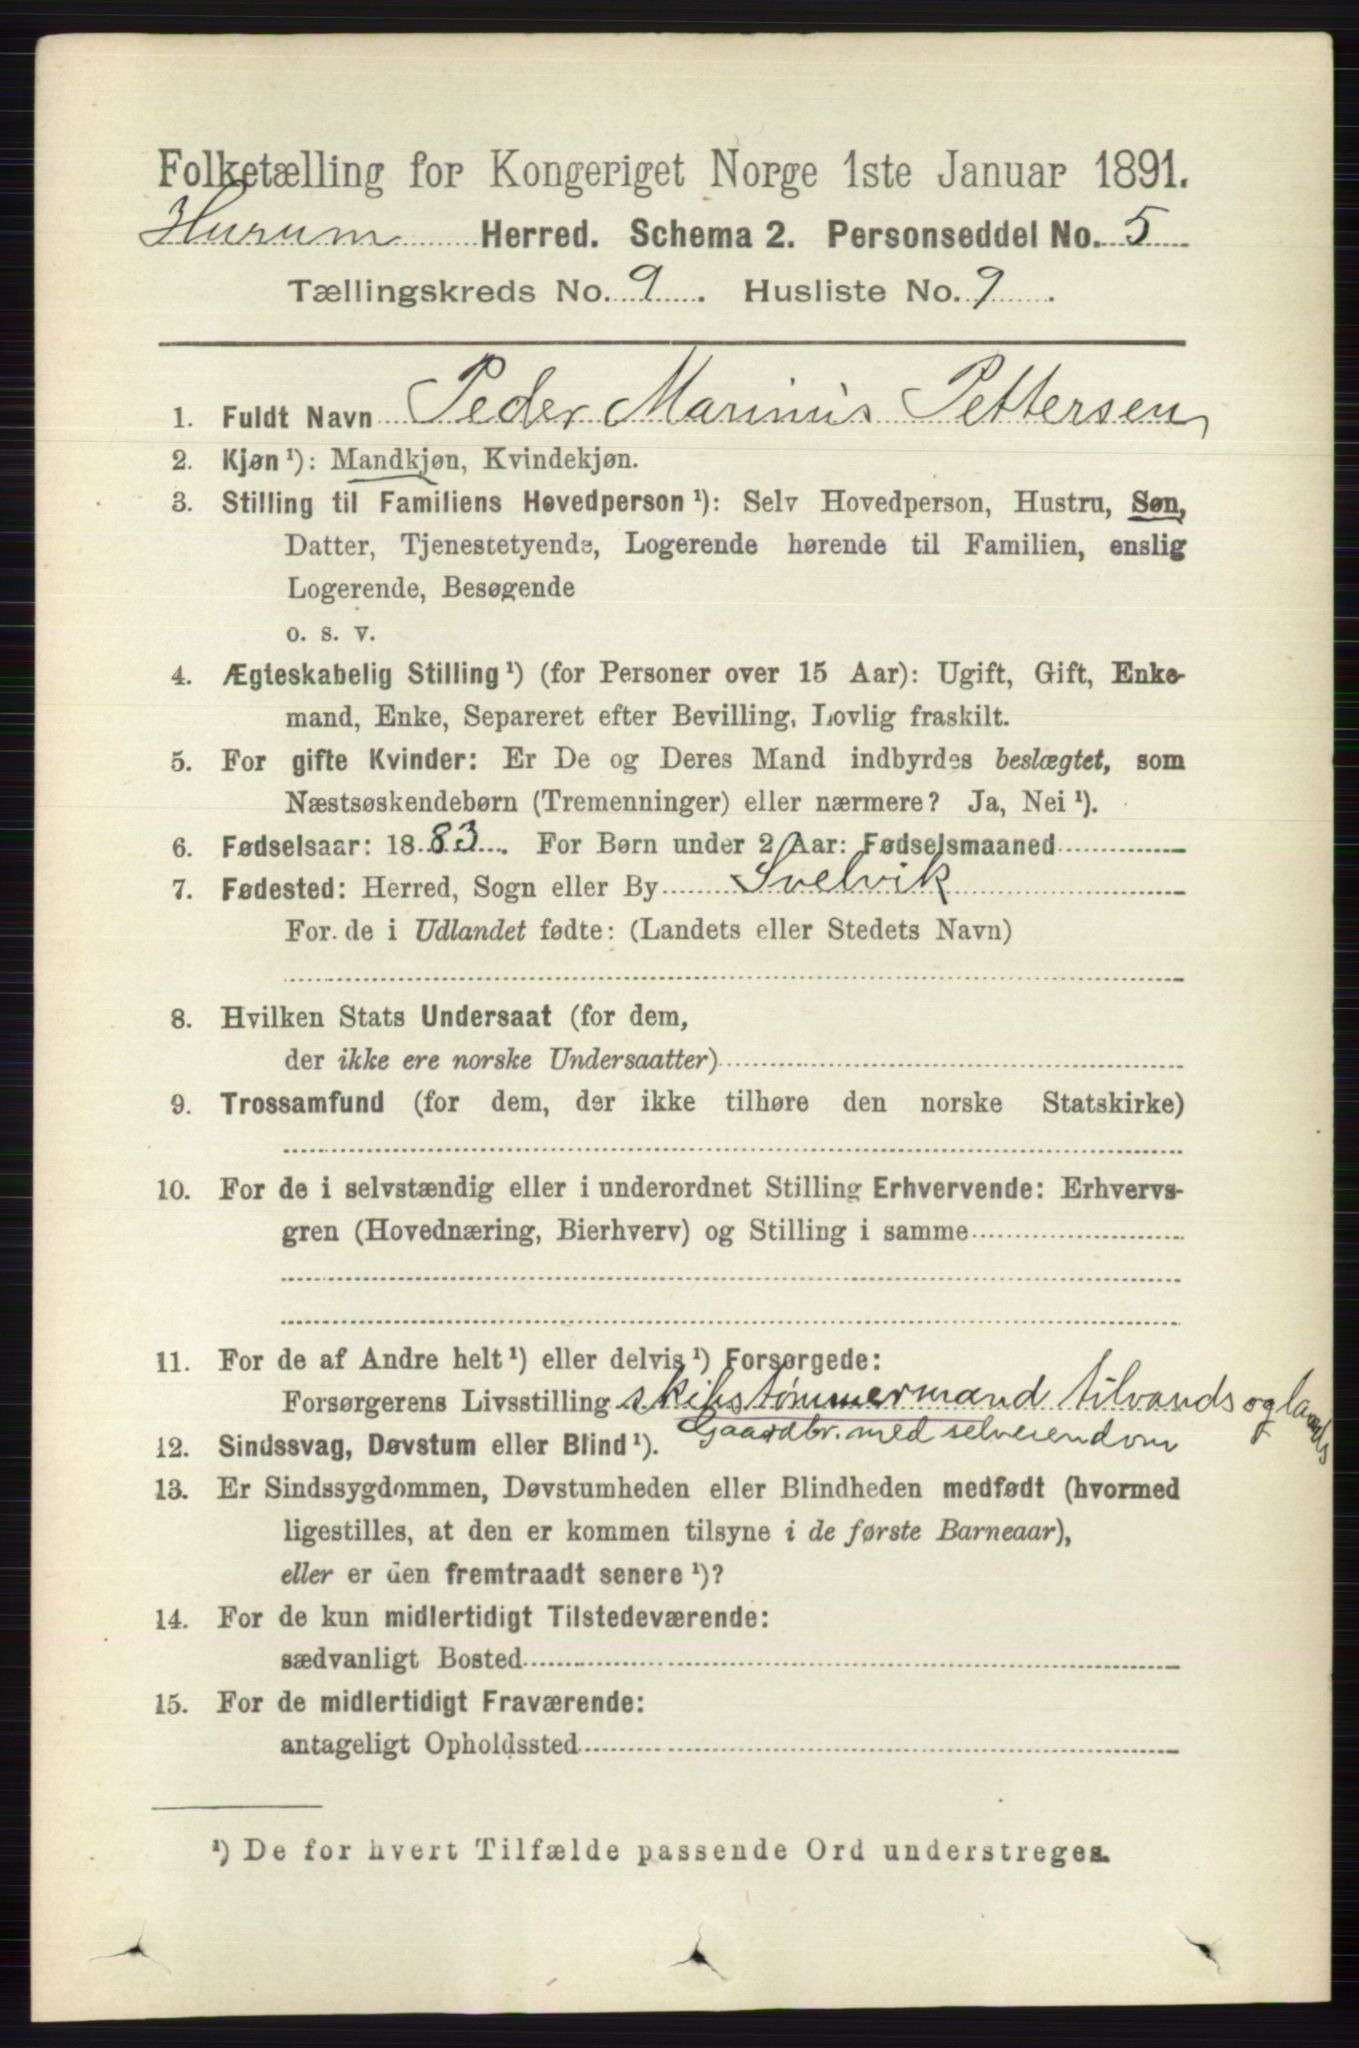 Folketælling for Kongeriget Norge 1ste Januar 1891.
Hurum Herred. Schema 2. Personseddel No. 5
Tællingskreds No. 9. Husliste No. 9.
1. Fuldt Navn Peder Marinus Pettersen,
2. Kjøn¹): Mandkjøn, Kvindekjøn.
3. Stilling til Familiens Hovedperson¹): Selv Hovedperson, Hustru, Søn,
Datter, Tjenestetyende, Logerende hørende til Familien, enslig
Logerende, Besøgende
o. s. v.
4. Ægteskabelig Stilling¹) (for Personer over 15 Aar): Ugift, Gift, Enke-
mand, Enke, Separeret efter Bevilling, Lovlig fraskilt.
5. For gifte Kvinder: Er De og Deres Mand indbyrdes beslægtet, som
Næstsøskendebørn (Tremenninger) eller nærmere? Ja, Nei¹).
6. Fødselsaar: 1883. For Børn under 2 Aar: Fødselsmaaned
7. Fødested: Herred, Sogn eller By Svelvik
For de i Udlandet fødte: (Landets eller Stedets Navn)
8. Hvilken Stats Undersaat (for dem,
der ikke ere norske Undersaatter)
9. Trossamfund (for dem, der ikke tilhøre den norske Statskirke)
10. For de i selvstændig eller i underordnet Stilling Erhvervende: Erhvervs-
gren (Hovednæring, Bierhverv) og Stilling i samme
11. For de af Andre helt¹) eller delvis¹) Forsørgede:
Forsørgerens Livsstilling skibstømmermand tilvands og lands
Gaardbr. med selveiendom
12. Sindssvag, Døvstum eller Blind¹).
13. Er Sindssygdommen, Døvstumheden eller Blindheden medfødt (hvormed
ligestilles, at den er kommen tilsyne i de første Barneaar),
eller er den fremtraadt senere¹)?
14. For de kun midlertidigt Tilstedeværende:
sædvanligt Bosted
15. For de midlertidigt Fraværende:
antageligt Opholdssted
¹) De for hvert Tilfælde passende Ord understreges.